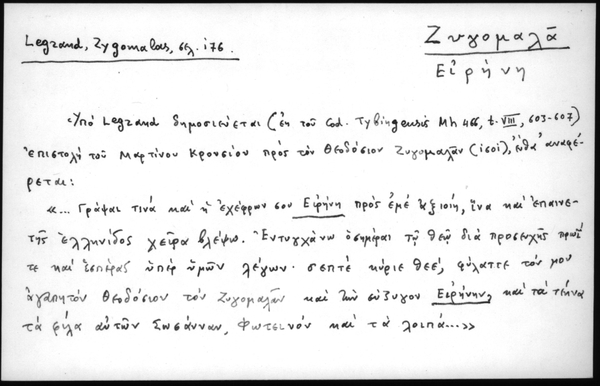 Ζυγομαλᾶ
Εἰρήνη
Legrand, Zygomalas, σελ. 176.
Ὑπὸ Legrand δημοσιεύεται (ἐκ τοῦ Cod. Tybingensis Mh 466, t. VIII, 603-607)
ἐπιστολὴ τοῦ Μαρτίνου Κρουσίου πρὸς τὸν Θεοδόσιον Ζυγομαλᾶν (1581), ἔνθα ἀναφέ-
ρεται:
«... Γράψαι τινά καὶ ἡ ἐχέφρων σου Εἰρήνη πρὸς ἐμὲ ἀξιοίη, ἵνα καὶ ἐπαινε-
τῆς ἑλληνίδος χεῖρα βλέψω. Ἐντυγχάνω ὁσημέραι τῷ θεῷ διὰ προσευχῆς πρωΐ
τε καὶ ἑσπέρας ὑπὲρ ὑμῶν λέγων· σεπτέ κύριε θεέ, φύλαττε τόν μου
ἀγαπητόν Θεοδόσιον τὸν Ζυγομαλᾶν καὶ τὴν σύζυγον Εἰρήνην, καὶ τὰ τέκνα
τὰ φίλα αὐτῶν Σωσάνναν, Φωτεινόν καὶ τὰ λοιπά...»